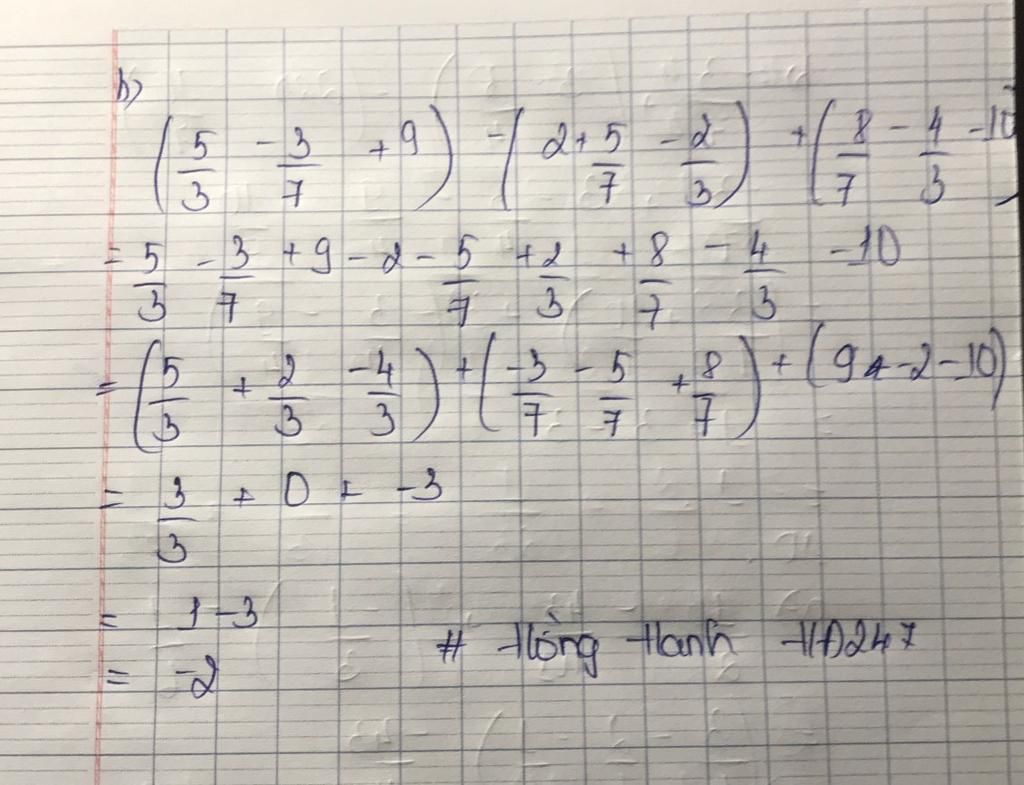 b)
(5/3 - 3/7 + 9) - (2 + 5/7 - 2/3) + (8/7 - 4/3 - 10)
= 5/3 - 3/7 + 9 - 2 - 5/7 + 2/3 + 8/7 - 4/3 - 10
= (5/3 + 2/3 - 4/3) + (-3/7 - 5/7 + 8/7) + (9 - 2 - 10)
= 3/3 + 0 + -3
= 1 - 3
= -2
# Hồng Hanh HĐ247